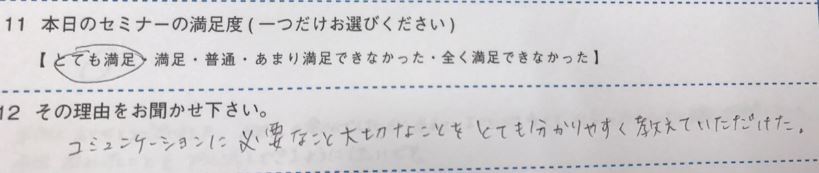 11 本日のセミナーの満足度(一つだけお選びください)
【とても満足・満足・普通・あまり満足できなかった・全く満足できなかった】
12 その理由をお聞かせ下さい。
コミュニケーションに必要なこと大切なことをとても分かりやすく教えていただけた。